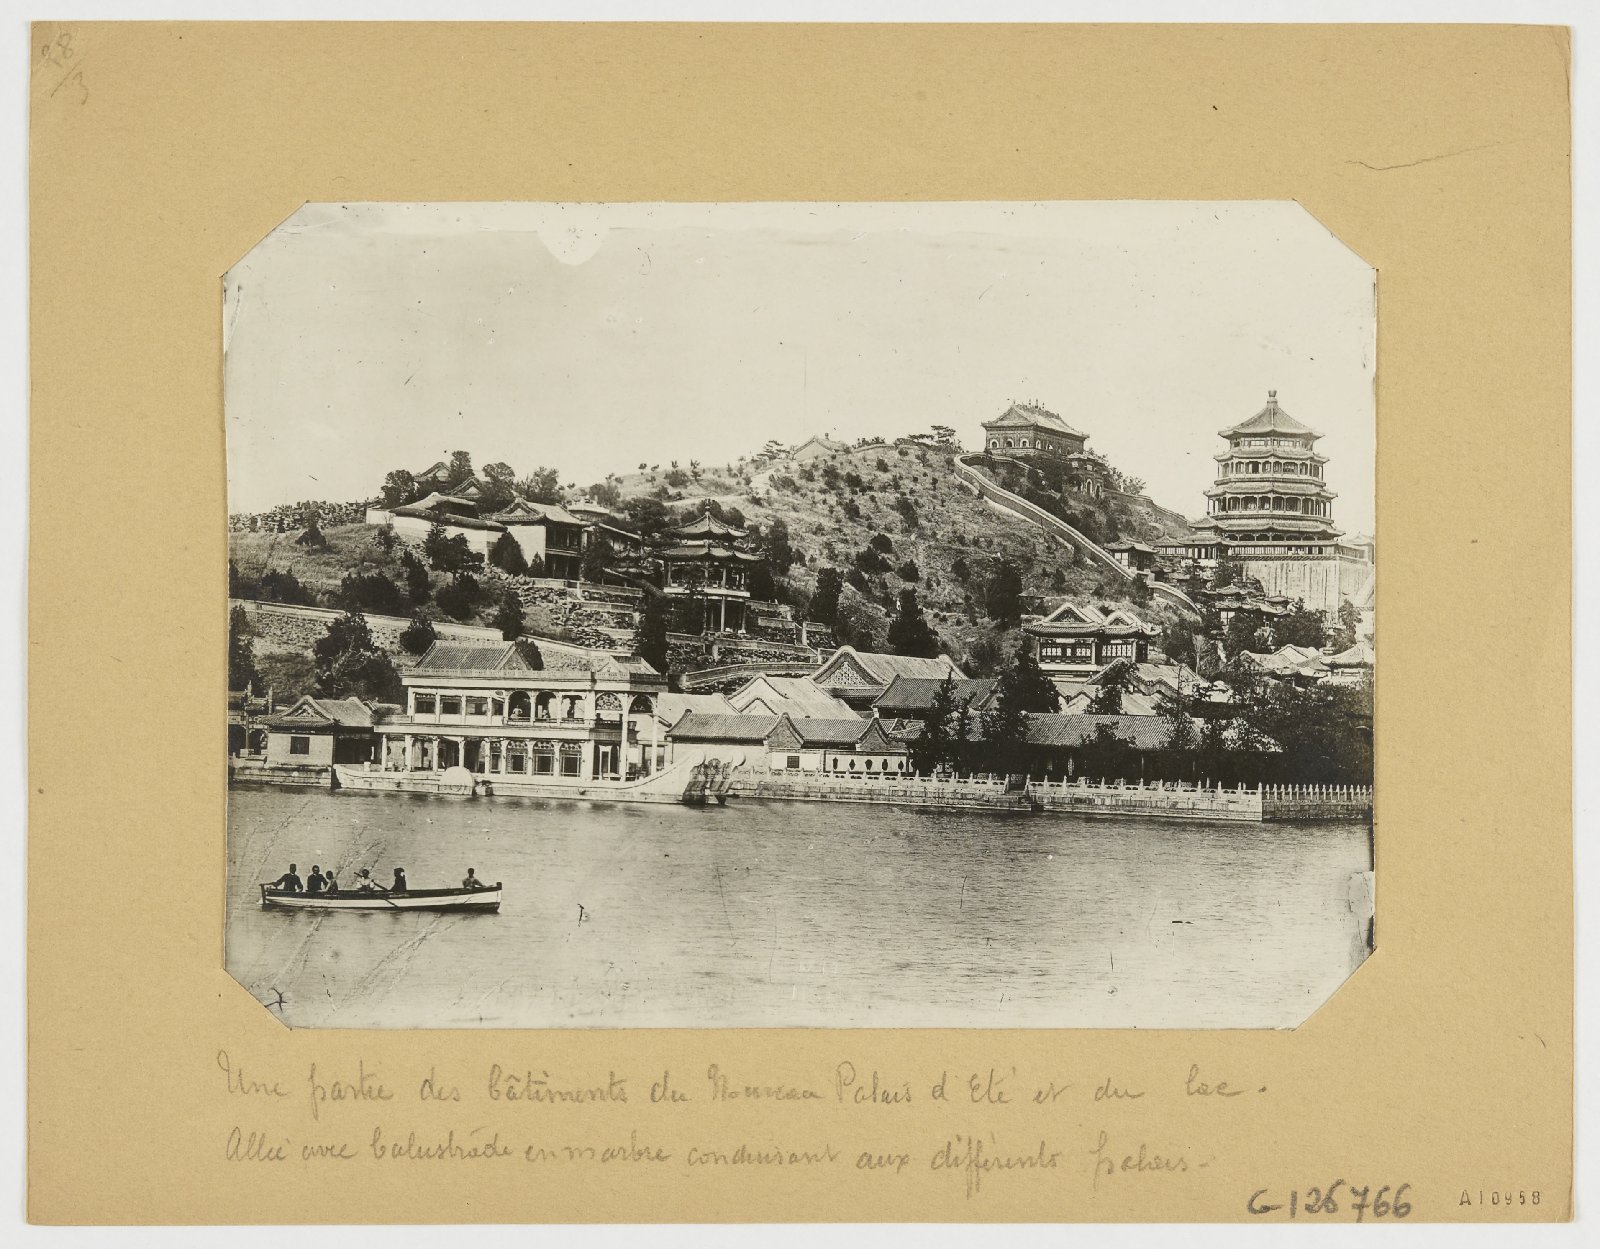 28/3
Une partie des bâtiments du Nouveau Palais d'Eté et du lac.
Allée avec balustrade en marbre conduisant aux différents palais.
G-126766
A10958